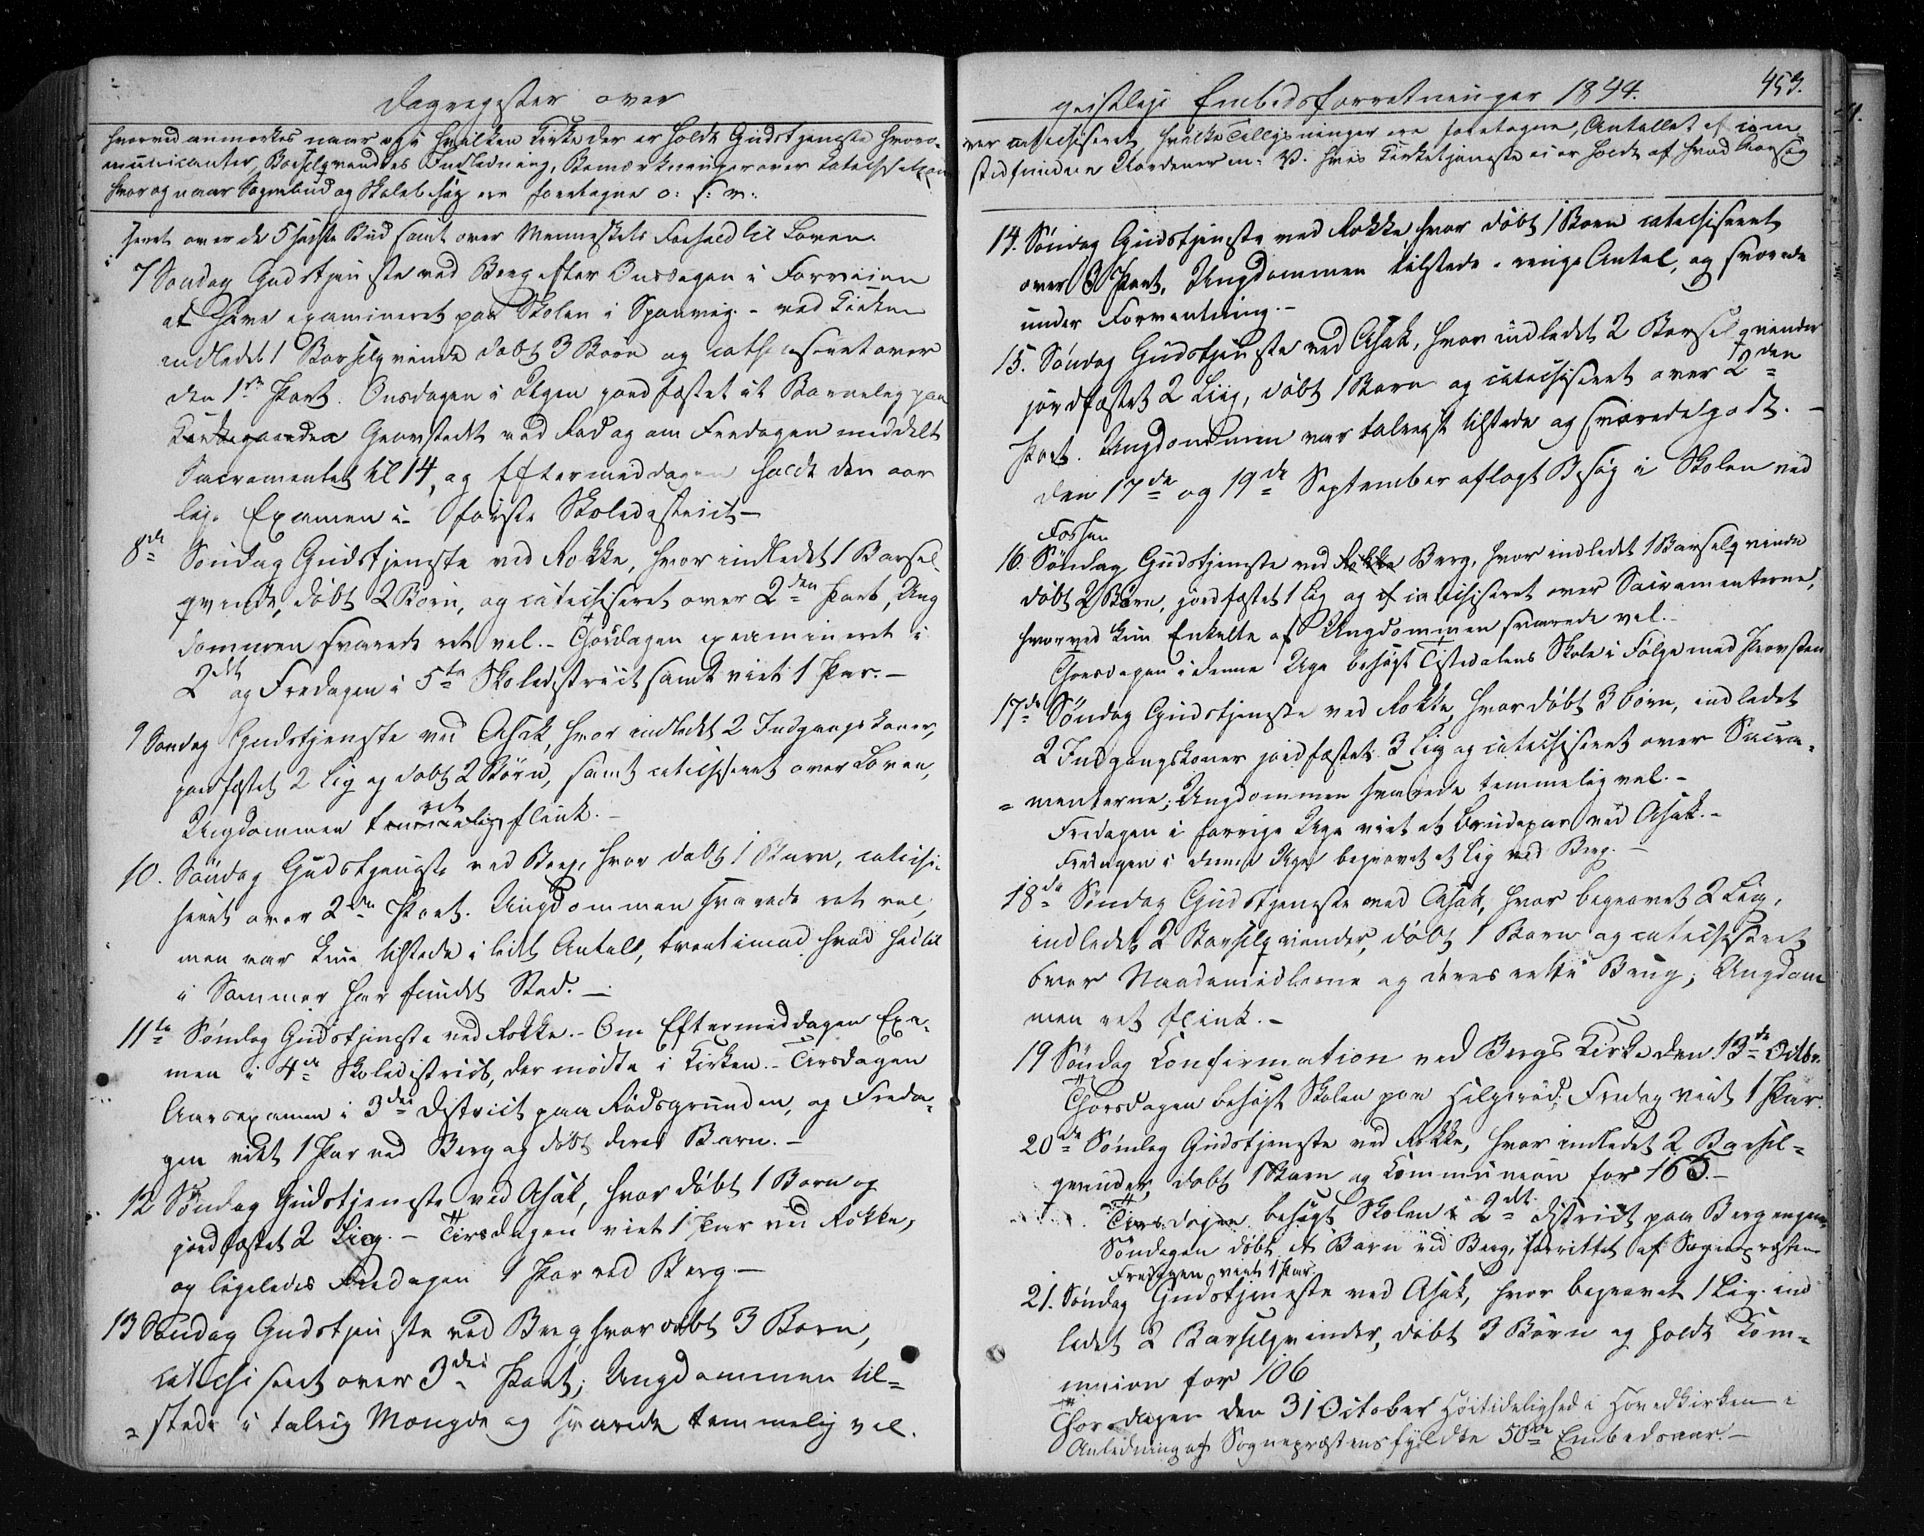 Dagregister over
hvorved anmærkes naar og i hvilken Kirke der er holdt Gudstjeneste hvoro-
municanter, Barselqvindes Indledning, Bemærkninger over Catechisation
hvor og naar Sognebud og Skolebesøg ere foretagne o: s: v:
seret over de 5 sidste Bud samt over Menneskets Forhold til Loven.
7 Søndag Gudstjeneste ved Berg efter Onsdagen i Forveien
at have examineret paa Skolen i Sponvig. - ved Kirken
indledet 1 Barselqvinde døbt 3 Børn og catechiseret over
den 1ste Part. Onsdagen i Ugen jordfæstet et Barnelig paa
Kirkegaarden Gravstedt ved Rad og om Fredagen meddelt
Sacramentet til 14, og Eftermeddagen holdt den aar
lige Examen i første Skoledistrict -
8de Søndag Gudstjeneste ved Rokke, hvor indledet 1 Barsel-
qvinde, døbt 2 Børn, og catechiseret over 2den Part, Ung
dommen svarede ret vel. - Thorsdagen examineret i
2det og Fredagen i 5te Skoledistrict samt viet 1 Par. -
9 Søndag Gudstjeneste ved Asak, hvor indledet 2 Indgangskoner,
jordfæstet 2 Lig og døbt 2 Børn, samt catechiseret over Loven,
ret
Ungdommen temmelig flink. -
10. Søndag Gudstjeneste ved Berg, hvor døbt 1 Barn, catechi-
seret over 2den Part. Ungdommen svarede ret vel,
men var kun tilstede i lidt Antall, tvertimod hvad hidtil
i Sommer har fundet Sted. -
11te Søndag Gudstjeneste ved Rokke. - Om Eftermiddagen Exa-
men i 4de Skoledistrict, der mødte i Kirken. - Tirsdagen
Aarsexamen i 3die District paa Rødsgrunden, og Freda-
gen viet 1 Par ved Berg og døbt deres Barn. -
12 Søndag Gudstjeneste ved Asak, hvor døbt 1 Barn og
jordfæstet 2 Liig. - Tirsdagen viet 1 Par ved Rokke,
og ligeledes Fredagen 1 Par ved Berg. -
13 Søndag Gudstjeneste ved Berg, hvor døbt 3 Børn,
catechiseret over 3die Part; Ungdommen til-
stede i talrig Mængde og svarede temmelig vel.
geistlige Embedsforretninger 1844. 453.
ver catechiseret, hvilke Tillysninger ere foretagne, Antallet af com
stedfundne Vordener m: V. hvis Kirketjeneste ei er holdt af hvad Aarsag
14. Søndag Gudstjeneste ved Rokke, hvor døbt 1 Barn catechiseret
over 3 Part, Ungdommen tilstede i ringe Antal, og svarede
under Forventning. -
15. Søndag Gudstjeneste ved Asak, hvor indledet 2 Barselqvinder
jordfæstet 2 Liig, døbt 1 Barn og catechiseret over 2den
Part. Ungdommen var talrigt tilstede og svarede godt. -
den 17de og 19de September aflagt Besøg i Skolen ved
Fossen
16. Søndag Gudstjeneste ved Rokke Berg, hvor indledet 1 Barselqvinde
døbt 2 Børn, jordfæstet 1 Lig og catechiseret over Sacramenterne,
hvorved kun Enkelte af Ungdommen svarede vel. -
Thorsdagen i denne Uge besøgt Tistedalens Skole i Følge med Provsten
17de Søndag Gudstjeneste ved Rokke, hvor døbt 3 børn, indledet
2 Indgangskoner jordfæstet 3 Lig og catechiseret over Sacra-
menterne; Ungdommen svarede temmelig vel. -
Fredagen i forrige Uge viet et Brudepar ved Asak. -
Fredagen i denne Uge begravet et Lig ved Berg. -
18de Søndag Gudstjeneste ved Asak, hvor begravet 2 Liig,
indledet 2 Barselqvinder, døbt 1 Barn og catechiseret
over Naademidlerne og deres rette Brug; Ungdom
men ret flink. -
19 Søndag Confirmation ved Bergs Kirke den 13de Octbr.
Thorsdagen besøgt Skolen paa Hilgerød; Fredag viet 1 Par.
20de Søndag Gudstjeneste ved Rokke, hvor indledet 2 Barsel-
qvinder, døbt 1 Barn og Communion for 165. -
Tirsdagen besøgt Skolen i 2det District paa Bergengen,
Søndagen døbt et Barn ved Berg, forrettet af Sognepræsten
Fredagen viet 1 Par.
21. Søndag Gudstjeneste ved Asak, hvor begravet 1 Lig, ind
ledet 2 Barselqvinder, døbt 3 Børn og holdt Com-
munion for 106
Thorsdagen den 31 October Høitidelighed i Hovedkirken i
Anledning af Sognepræstens fyldte 50de Embedsaar. -